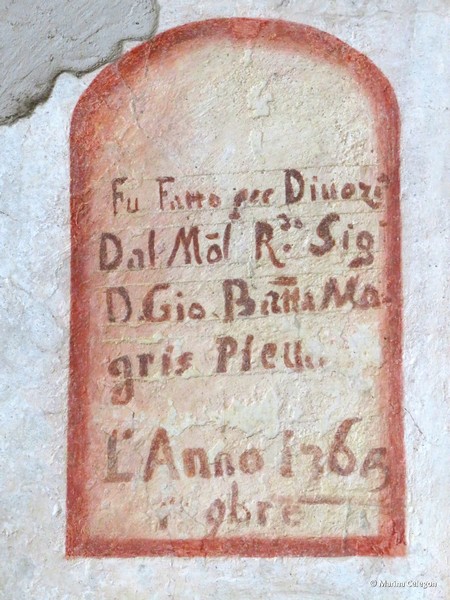 Fu Fatto per Diuozⁿᵉ
Dal Mōl R.ᵈᵒ Sig.ʳ
D. Gio. Batt̄a Ma-
gris
L'Anno 1765
9bre
© Marina Celegon